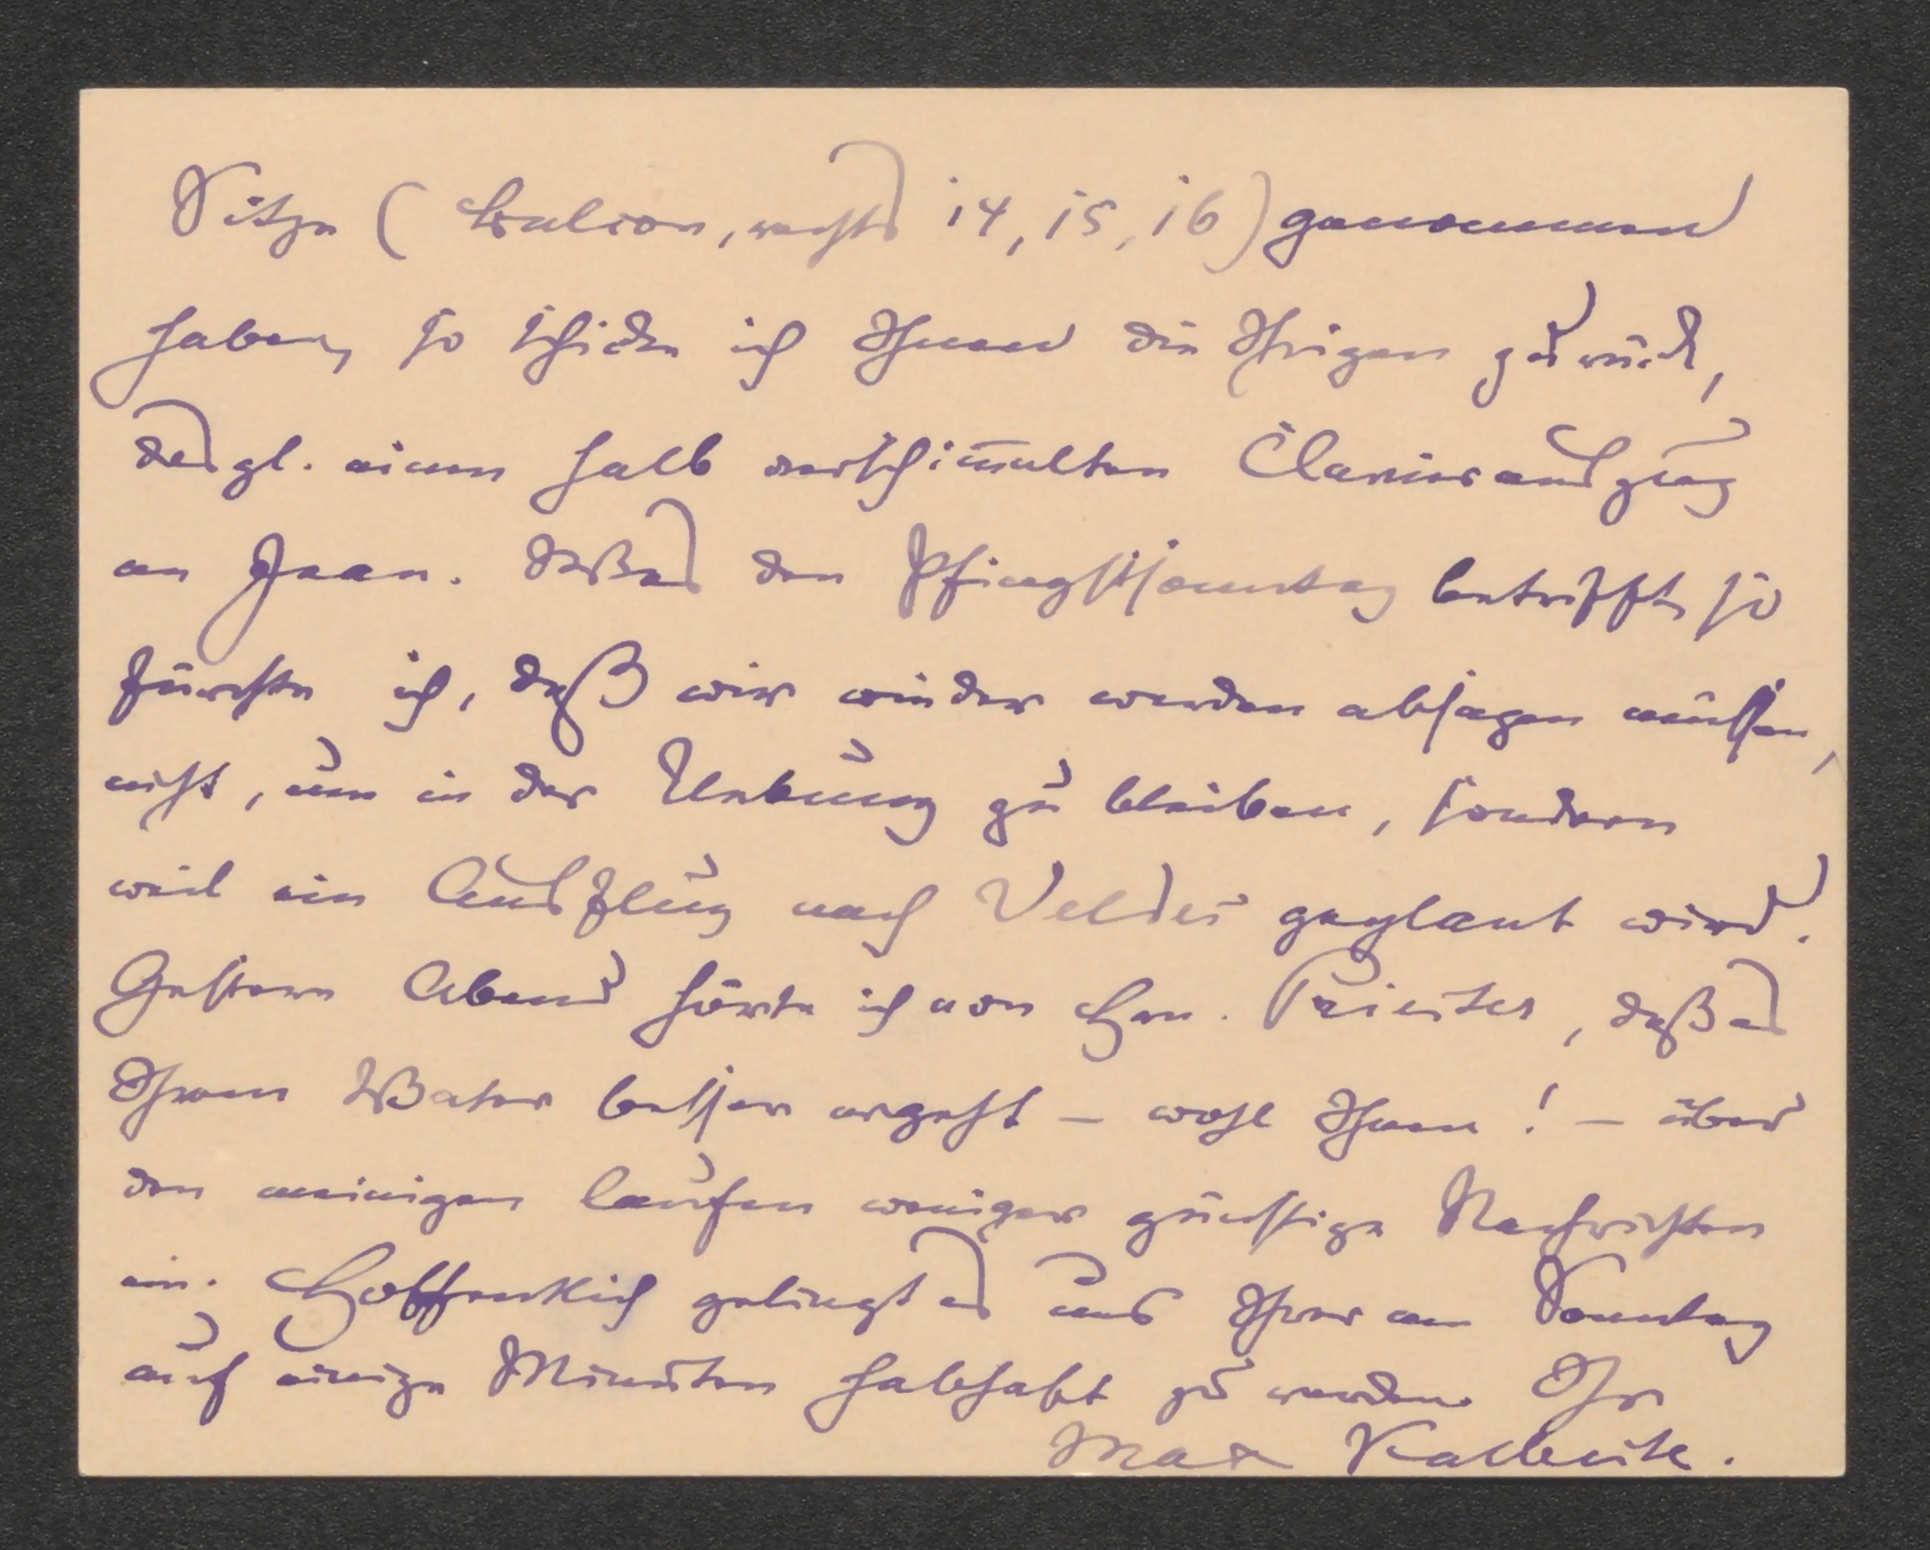 Sitze (Balcon, rechts 14, 15, 16) genommen
haben, so schicke ich Ihnen die Ihrigen zurück,
desgl. einen halb verschim̅elten Clavierauszug
an Jean. Was den Pfingstsonntag betrifft, so
fürchte ich, daß wir wieder werden absagen müssen,
nicht, um in der Uebung zu bleiben, sondern
weil ein Ausflug nach Veldes geplant wird.
Gestern Abend hörte ich von Hrn. daß es
Ihrem Vater besser ergeht – wohl Ihnen! – über
den meinigen laufen weniger günstige Nachrichten
ein. Hoffentlich gelingt es uns Ihrer am Sonntag
auf einige Minuten habhaft zu werden. Ihr
Max Kalbeck.